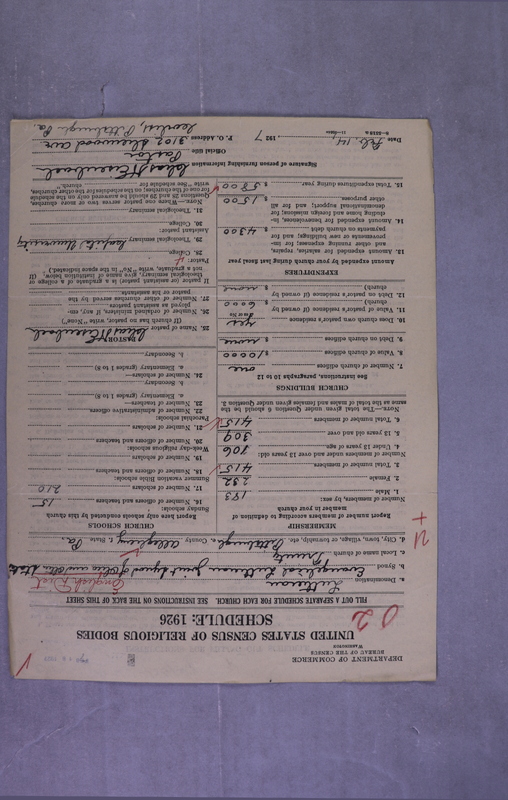 DEPARTMENT OF COMMERCE
BUREAU OF THE CENSUS
WASHINGTON
UNITED STATES CENSUS OF RELIGIOUS BODIES
SCHEDULE: 1926
FILL OUT A SEPARATE SCHEDULE FOR EACH CHURCH. SEE INSTRUCTIONS ON THE BACK OF THIS SHEET
a. Denomination Lutheran English Dist
b. Synod Evangelical Lutheran Joint Synod of Ohio and other States
c. Local name of church Trinity
d. City, town, village, or township, etc. Pittsburgh c. County Allegheny f. State Pa.
MEMBERSHIP
Report number of members according to definition of
member in your church
Number of members, by sex:
1. Male 183
2. Female 232
3. Total number of members 415
Number of members under and over 13 years old:
4. Under 13 years of age 106
5. 13 years old and over 309
6. Total number of members 415
NOTE.—The total given under Question 6 should be the
same as the total of males and females given under Question 3.
CHURCH BUILDINGS
See instructions, paragraphs 10 to 12
7. Number of church edifices one
8. Value of church edifices $ 10000
9. Debt on church edifices $ none
10. Does church own pastor's residence yes
11. Value of pastor's residence (if owned by
church) $ 6000
12. Debt on pastor's residence (if owned by
church) $ none
EXPENDITURES
Amount expended by your church during last fiscal year
13. Amount expended for salaries, repairs,
and other running expenses; for im-
provements or new building; and for
payments on church debt $ 4300
14. Amount expended for benevolences, in-
cluding home and foreign missions; for
denominational support; and for all
other purposes $ 1500
15. Total expenditures during year $ 5800
CHURCH SCHOOLS
Report here only schools conducted by this church
Sunday schools:
16. Number of officers and teachers 15
17. Number of scholars 210
Summer vacation Bible schools:
18. Number of officers and teachers
19. Number of scholars
Week-day religious schools:
20. Number of officers and teachers
21. Number of scholars
Parochial schools:
22. Number of administrative officers
23. Number of teachers—
a. Elementary (grades 1 to 8)
b. Secondary
24. Number of scholars—
a. Elementary (grades 1 to 8)
b. Secondary
PASTOR
25. Name of pastor
(If church has no pastor, write "None")
26. Number of ordained ministers, if any, em-
ployed as assistant pastors
27. Number of other churches served by the
pastor or his assistants
If pastor (or assistant pastor) is a graduate of a college or
theological seminary, give name of institution below. (If
not a graduate, write "No" in the space indicated.)
Pastor:
28. College
29. Theological seminary Capital University
Assistant pastor:
30. College
31. Theological seminary
NOTE.—Where one pastor serves two or more churches,
Questions 28 and 29 should be answered only on the schedule
for one of the churches; on the schedules for the other churches,
write "See schedule for church."
Signature of person furnishing information
Official title Pastor
Date Feb. 14, 1927 P. O. Address 3102 Sherwood Ave
Pittsburgh Pa.